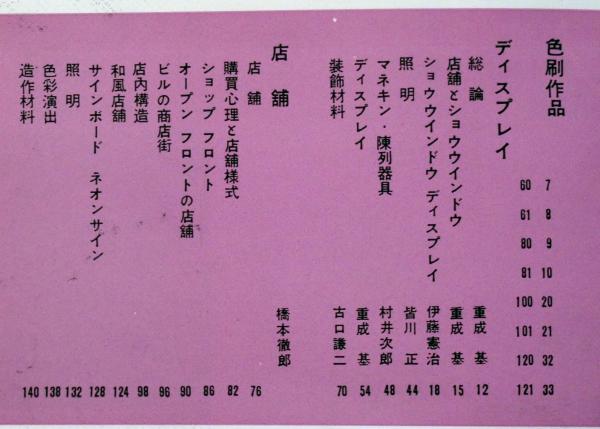 色刷作品 7 8 9 10 20 21 32 33
60 61 80 81 100 101 120 121
ディスプレイ
総論 重成 基 12
店舗とショウウインドウ 重成 基 15
ショウウインドウ ディスプレイ 伊藤憲治 18
照明 皆川 正 44
マネキン・陳列器具 村井次郎 48
ディスプレイ 重成 基 54
装飾材料 古口謙二 70
店舗 橋本徹郎
店舗 76
購買心理と店舗様式 82
ショップ フロント 86
オープン フロントの店舗 90
ビルの商店街 96
店内構造 98
和風店舗 124
サインボード ネオンサイン 128
照明 132
色彩演出 138
造作材料 140